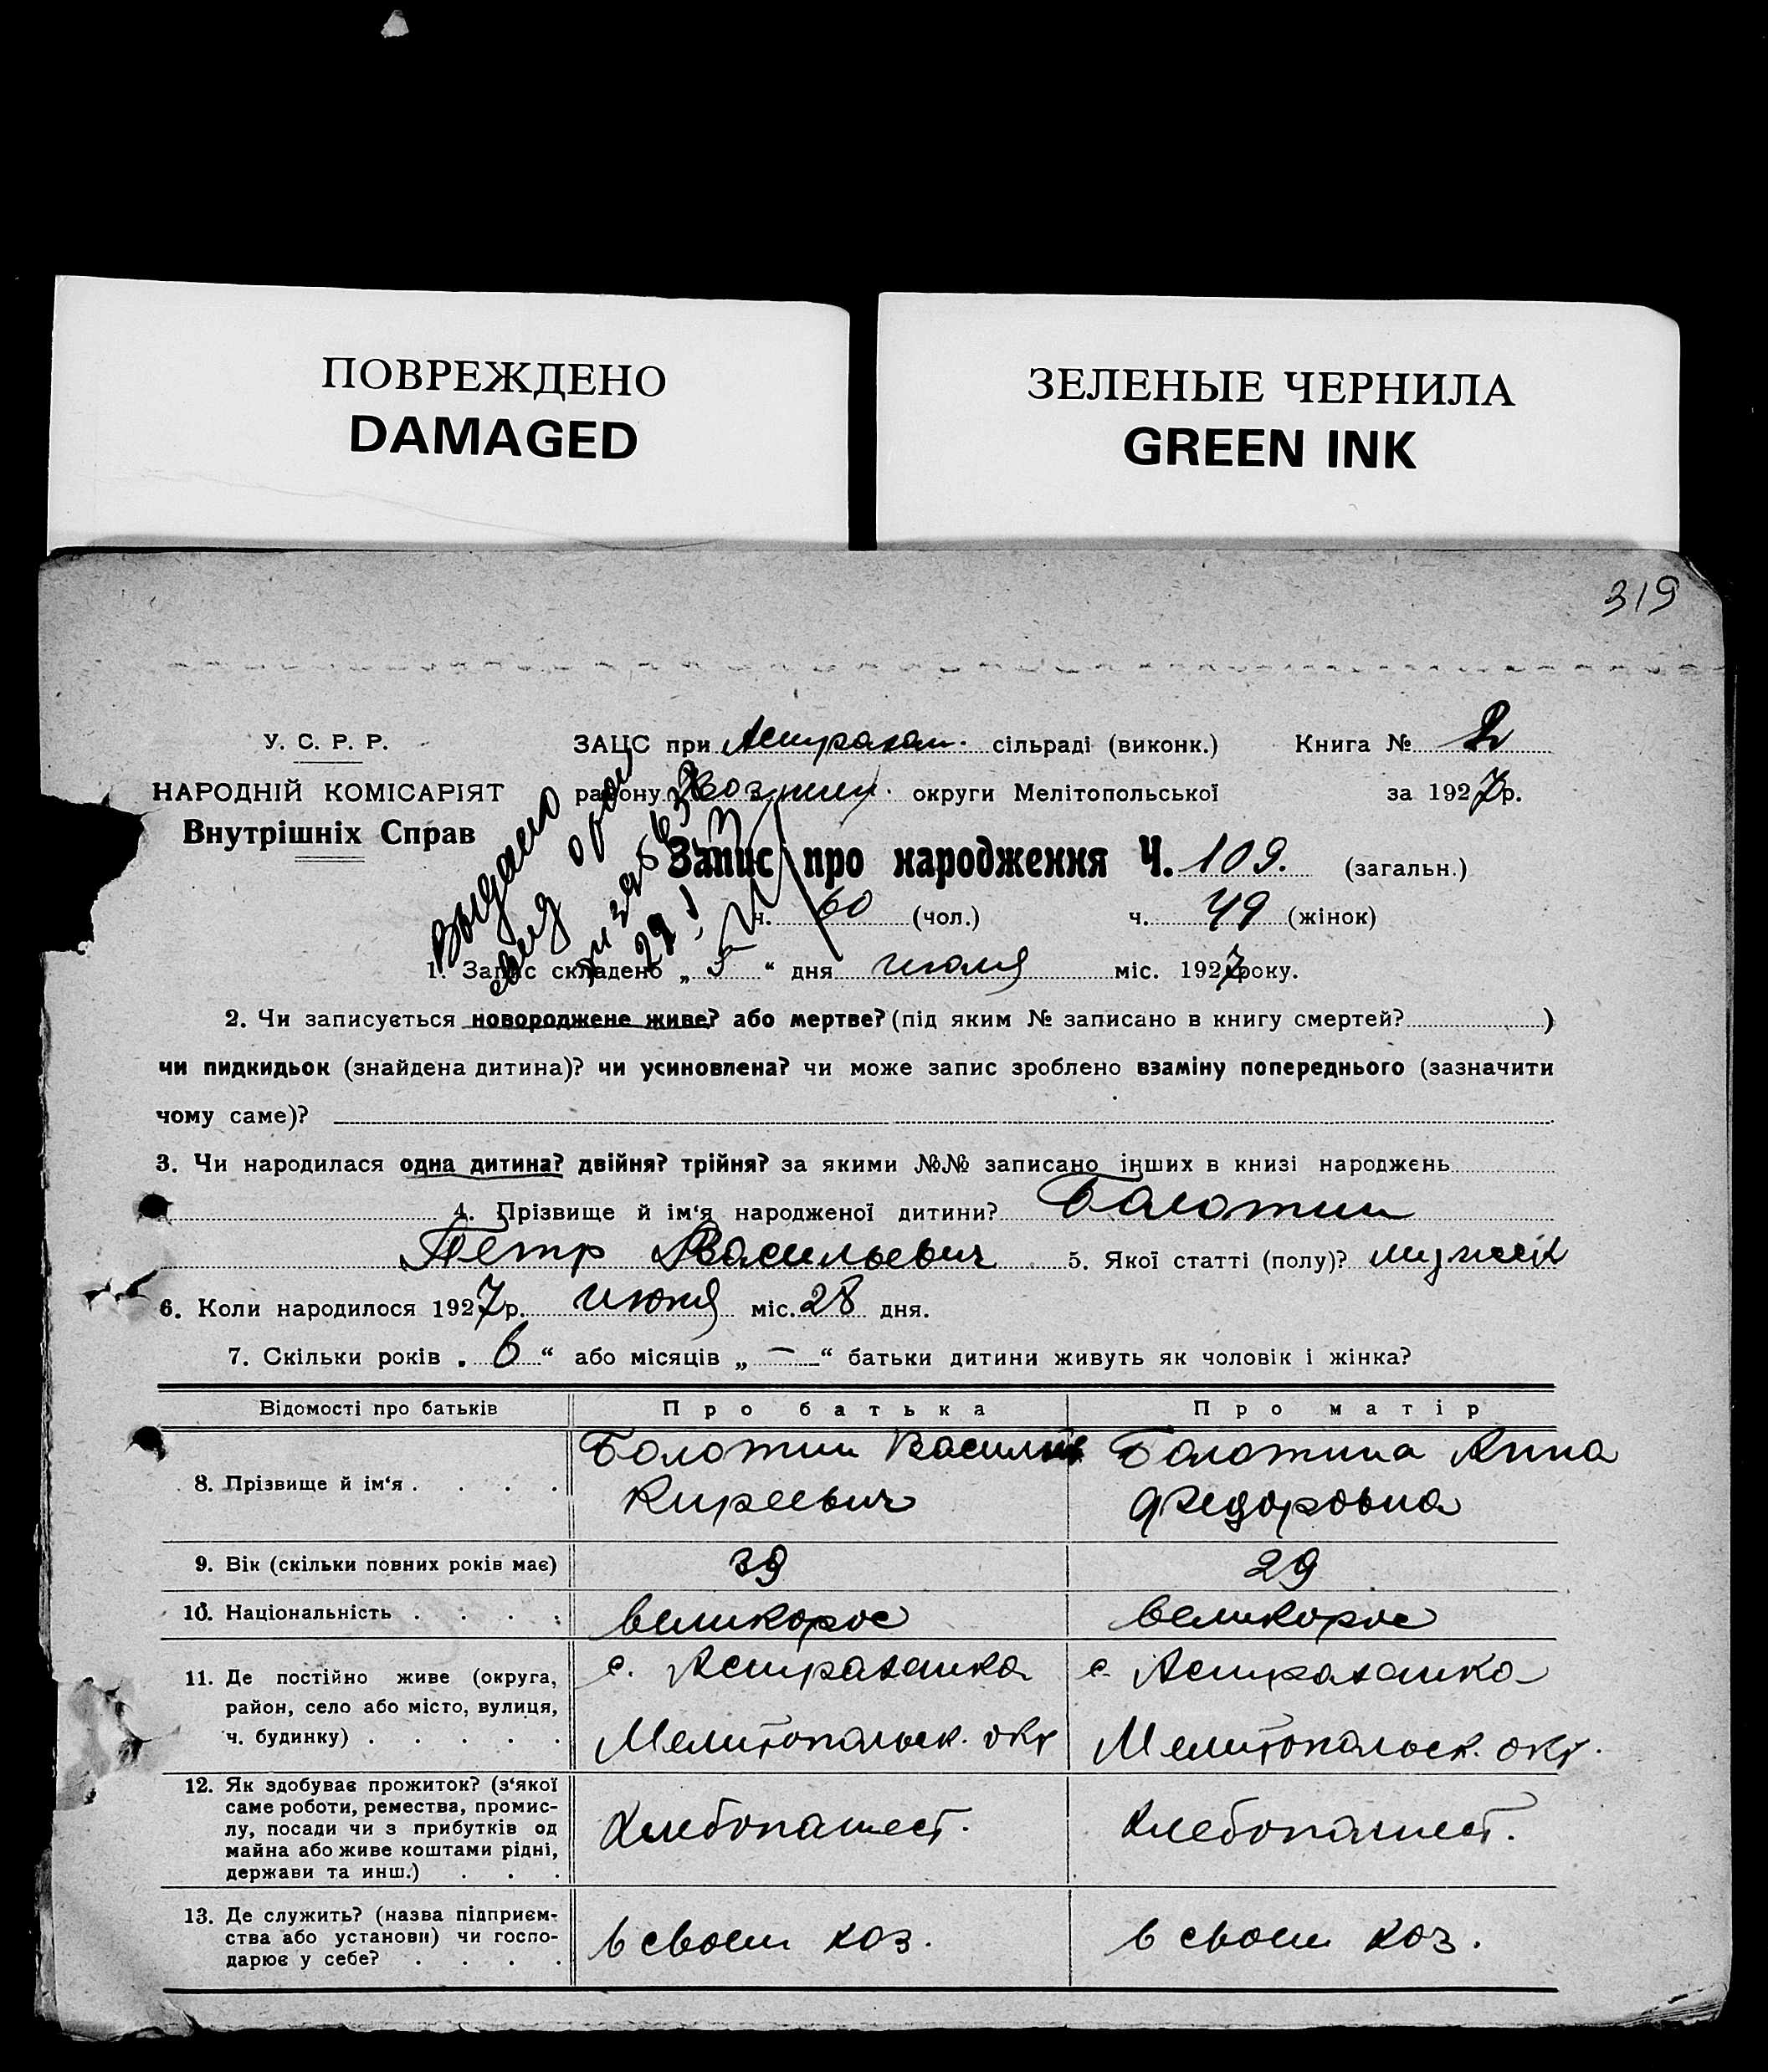 ПОВРЕЖДЕНО
DAMAGED
ЗЕЛЕНЫЕ ЧЕРНИЛА
GREEN INK
319
У. С. Р. Р.
НАРОДНІЙ КОМІСАРІЯТ
Внутрішніх Справ
ЗАЦС при Астрахан. сільраді (виконк.) Книга № 2
району округи Мелітопольської за 1927 р.
Выдано
Запис про народження Ч. 109. (загальн.)
ч. 60 (чол.) ч. 49 (жінок)
1. Запис складено „ 5 “ дня июля міс. 1927 року.
2. Чи записується новороджене живе? або мертве? (під яким № записано в книгу смертей? )
чи пидкидьок (знайдена дитина)? чи усиновлена? чи може запис зроблено взаміну попереднього (зазначити
чому саме)?
3. Чи народилася одна дитина? двійня? трійня? за якими №№ записано інших в книзі народжень
4. Прізвище й ім‘я народженої дитини? Болотин
Петр Васильевич 5. Якої статті (полу)? мужск
6. Коли народилося 1927 р. июня міс. 28 дня.
7. Скільки років „ 6 “ або місяців „ — “ батьки дитини живуть як чоловік і жінка?
Відомості про батьків Про батька Про матір
8. Прізвище й ім‘я . . . .
Болотин Василий
Киреевич
Болотина Анна
Федоровна
9. Вік (скільки повних років має) 39 29
10. Національність . . . . великорос великорос
11. Де постійно живе (округа,
район, село або місто, вулиця,
ч. будинку) . . . . .
с. Астраханка
Мелитопольск. окр
с. Астраханка
Мелитопольск. окр.
12. Як здобуває прожиток? (з‘якої
саме роботи, ремества, промис-
лу, посади чи з прибутків од
майна або живе коштами рідні,
держави та инш.) . . .
Хлебопашест.
Хлебопашест.
13. Де служить? (назва підприєм-
ства або установи) чи госпо-
дарює у себе? . . . .
в своем хоз.
в своем хоз.